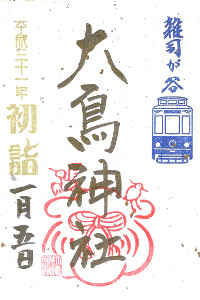 雑司が谷
大鳥神社
平成二十一年
初詣
一月五日